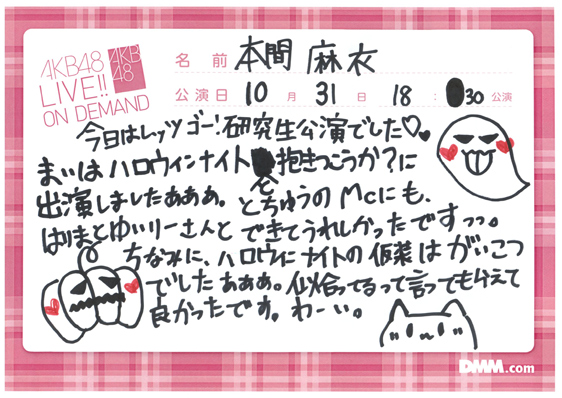 AKB48
LIVE!!
ON DEMAND
AKB
48
名前 本間 麻衣
公演日 10月31日 18:30公演
今日はレッツゴー!研究生公演でした♡♡
まいはハロウィンナイトと抱きつこうか?に
出演しましたあああ。とちゅうのMCにも、
はりまとゆいりーさんとできてうれしかったですっっ。
ちなみに、ハロウィンナイトの仮装はがいこつ
でしたあああ。似合ってるって言ってもらえて
良かったです。わーい。
DMM.com